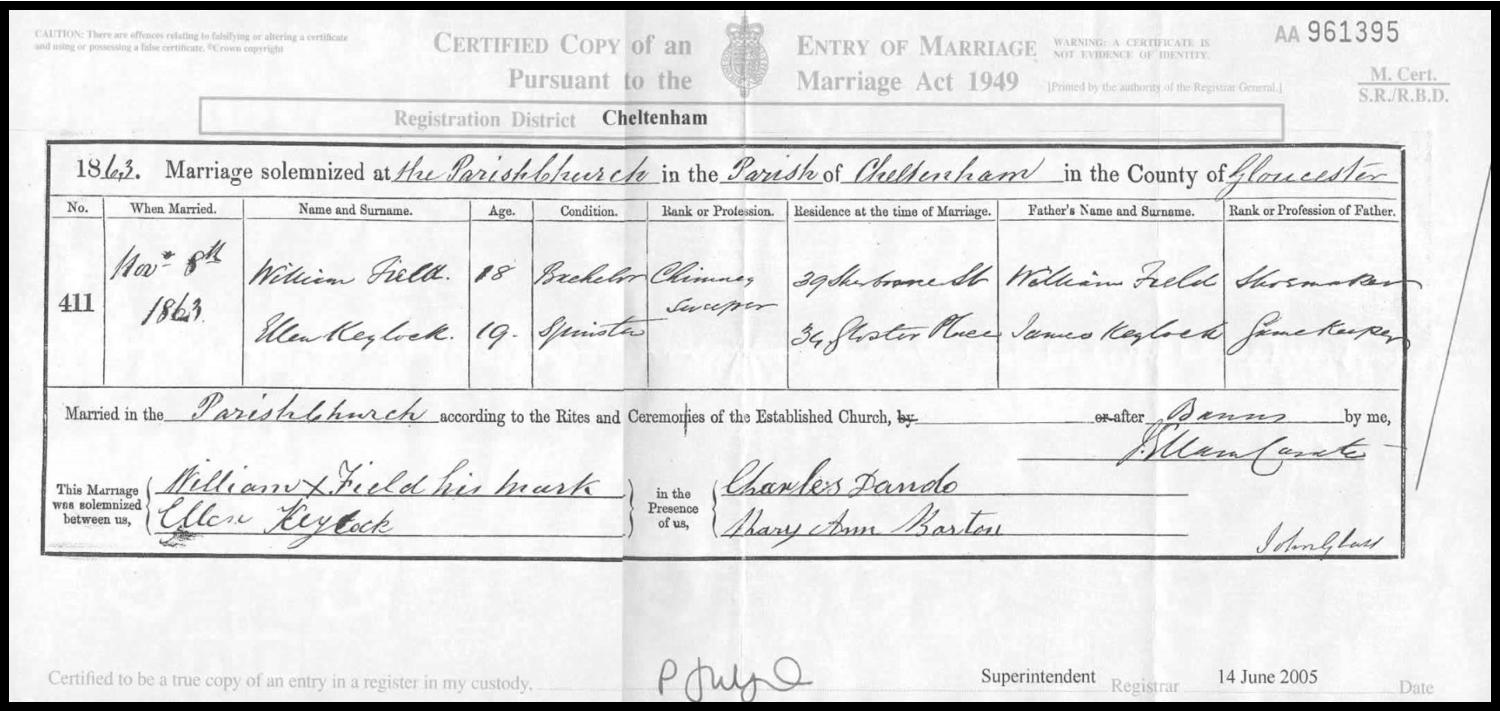 CAUTION: There are offences relating to falsifying or altering a certificate
and using or possessing a false certificate. ©Crown copyright
CERTIFIED COPY of an ENTRY OF MARRIAGE
Pursuant to the Marriage Act 1949
WARNING: A CERTIFICATE IS
NOT EVIDENCE OF IDENTITY.
[Printed by the authority of the Registrar General.]
AA 961395
M. Cert.
S.R./R.B.D.
Registration District Cheltenham
1863. Marriage solemnized at the Parish Church in the Parish of Cheltenham in the County of Gloucester
No. When Married. Name and Surname. Age. Condition. Rank or Profession. Residence at the time of Marriage. Father's Name and Surname. Rank or Profession of Father.
411 Novr 8th 1863. William Field. 18 Bachelor Chimney Sweeper 39 Sherborne St William Field Shoemaker
Ellen Keylock. 19. Spinster 34 Gloster Place James Keylock Game Keeper
Married in the Parish Church according to the Rites and Ceremonies of the Established Church, by or after Banns by me,
Curate
This Marriage was solemnized between us, William X Field his mark
Ellen Keylock
in the Presence of us, Charles Dando
Mary Ann Barton
John Glass
Certified to be a true copy of an entry in a register in my custody. Superintendent Registrar 14 June 2005 Date